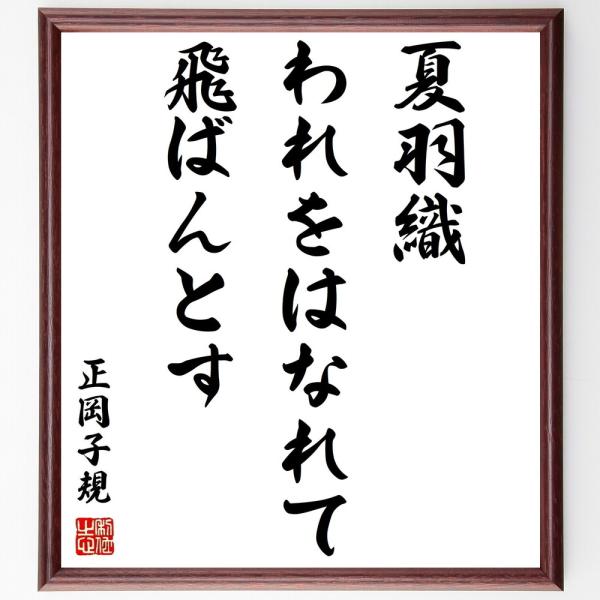 夏羽織
われをはなれて
飛ばんとす
正岡子規